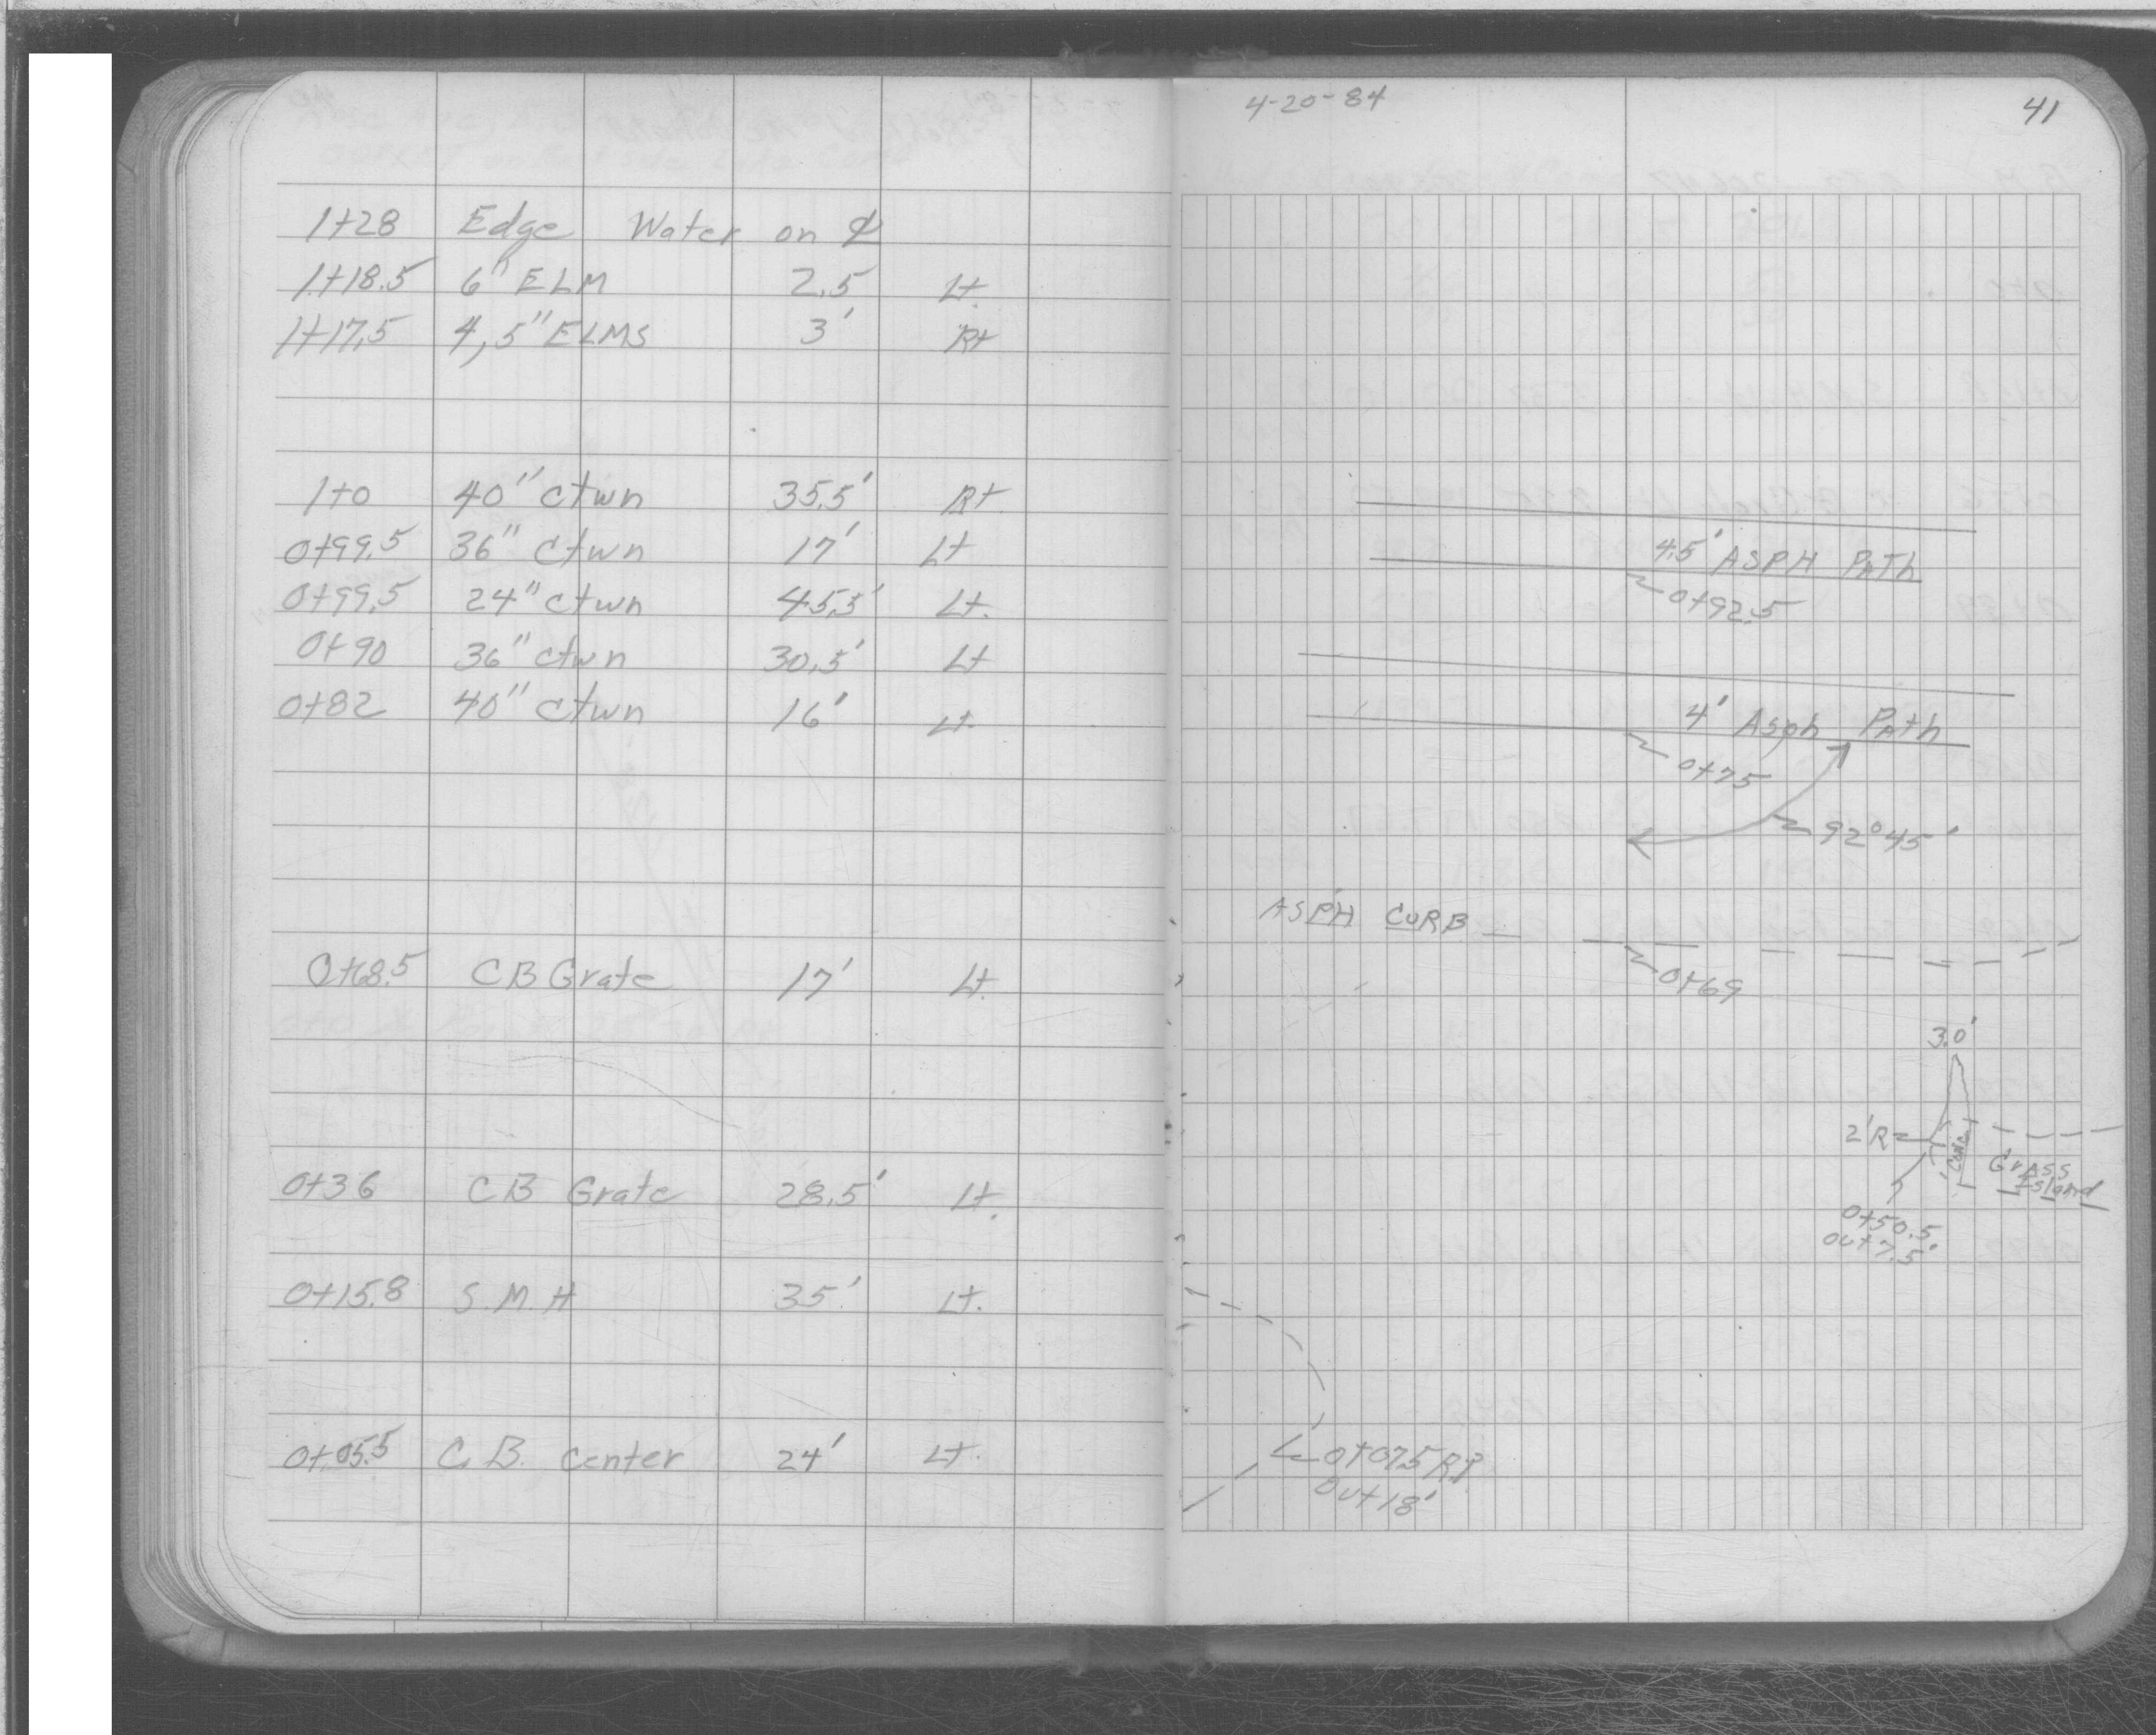 1+28 Edge Water on ℄
1+18.5 6" ELM 2.5 Lt.
1+17.5 4,5" ELMS 3' Rt
1+0 40" ctwn 35.5' Rt.
0+99.5 36" ctwn 17' Lt
0+99.5 24" ctwn 45.5' Lt.
0+90 36" ctwn 30.5' Lt
0+82 40" ctwn 16' Lt.
0+68.5 CB Grate 17' Lt.
0+36 CB Grate 28.5' Lt.
0+15.8 S.M.H 35' Lt.
0+05.5 C.B. Center 24' Lt.
4-20-84 41
4.5' ASPH PATh
0+92.5
4' Asph PAth
0+75
92°45'
ASPH CURB
0+69
3.0'
2'R
Conc.
Grass
Island
0+50.5
out 7.5'
0+07.5 R.P
Out 18'